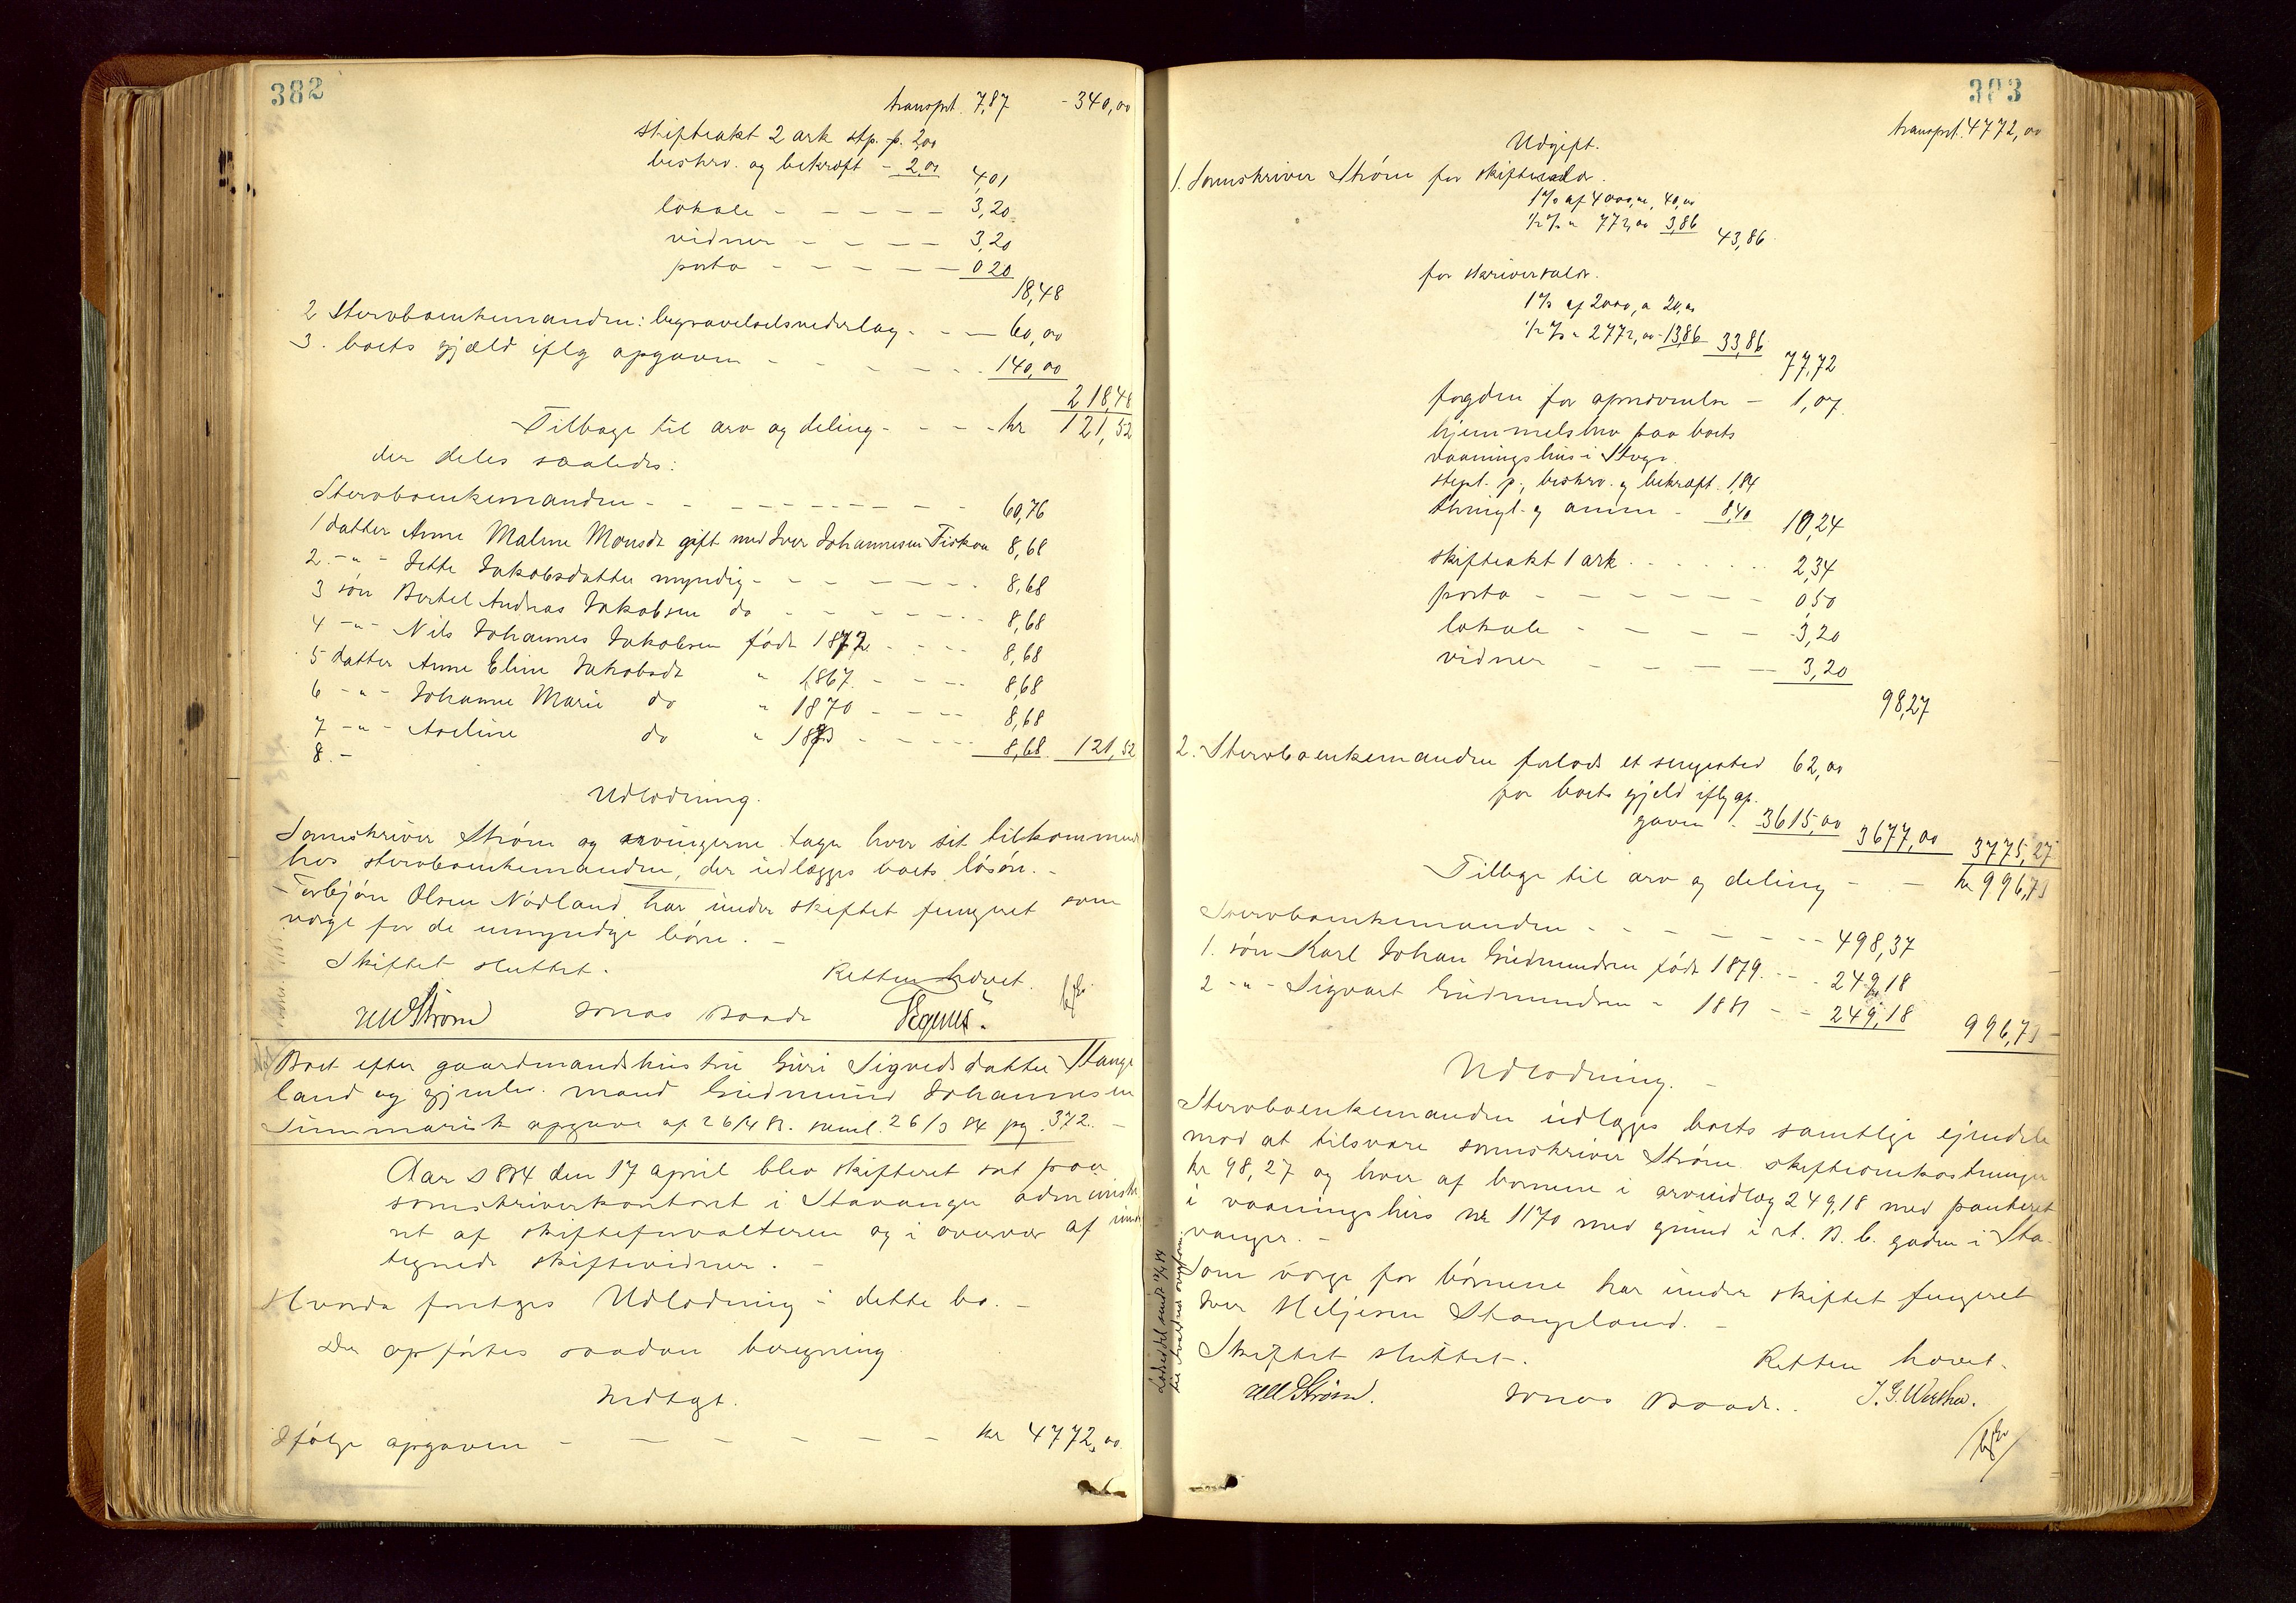 382
transprt. 7,87 - 340,00
skifteakt 2 ark stp. p. 2,00
beskrv. og bekræft - 2,01 4,01
lokale - - - - - 3,20
vidner - - - - 3,20
porto - - - - - 0 20
18,48
2 Stervboenkemanden: begravelsesvederlag - - - 60,00
3. boets gjæld iflg opgaven - - - - - 140,00
218,48
Tilbage til arv og deling - - - - kr 121,52
der deles saaledes:
Stervboenkemanden - - - - - - - - - 60,76
1 datter Anne Malene Monsdt gift med Iver Johannesen Tiskou 8,68
2. -"- Jette Jakobsdatter myndig - - - - - - - 8,68
3 søn Bertel Andreas Jakobsen do - - - - - - 8,68
4 -"- Nils Johannes Jakobsen født 1872 - - - - 8,68
5 datter Anne Eline Jakobsdt " 1867 - - - - 8,68
6 -"- Johanne Marie do " 1870 - - - - 8,68
7 -"- Aveline do " 1873 - - - - 8,68 121,52
8. -
Udlodning.
Sorenskriver Strøm og arvingerne tage hver sit tilkommende
hos stervboenkemanden, der udlægges boets løsøre. -
Torbjørn Olsen Nødland har under skiftet fungeret som
verge for de umyndige børn. -
Skiftet sluttet. Retten hævet.
Strøm Jonas Baade
Boet efter gaardmandshustru Guri Sigvedsdatter Stange
land og gjenlev. mand Gudmund Johannesen
Summarisk opgave af 26/4 81. saml. 26/3 84 pg. 372. -
Aar 1884 den 17 april blev skifteret sat paa
sorenskriverkontoret i Stavanger administre
ret af skifteforvalteren og i overvær af under
tegnede skiftevidner. -
Hvorda foretoges Udlodning i dette bo. -
Der opførtes saadan beregning
Indtægt.
Ifølge opgaven - - - - - - kr 4772,00
383
transprt. 4772,00
Udgift.
1. Sorenskriver Strøm for skiftesalær.
1 % af 4000,00, 40,00
1/2 % " 772,00 3,86 43,86
for skriversalær.
1 % af 2000,00 20,00
1/2 % " 2772,00 - 13,86 33,86
77,72
fogden for opnævnelse - 1,07
hjemmelsbrev paa boets
vaaningshus i Stvgr.
stepl. p., beskrv. og bekræft. 1,84
thingl. og ann - 8,40 10,24
skifteakt 1 ark - - - - - 2,34
porto - - - - - - 0,50
lokale - - - - - 3,20
vidner - - - - - 3,20
98,27
2. Stervboenkemanden forlods et sengested 62,00
for boets gjeld iflg op-
gaven - 3615,00 3677,00 3775,27
Tilbge til arv og deling - - kr 996,73
Stervboenkemanden - - - - - - - 498,37
1. søn Karl Johan Gudmundsen født 1879. - - 249,18
2 -"- Sigvart Gudmundsen " 1881 - - 249,18 996,73
Udlodning. -
Stervboenkemanden udlægges boets samtlige ejendele
mod at tilsvare sorenskriver Strøm skifteomkostninger
kr 98,27 og hver af børnene i arveudlæg 249,18 med panteret
i vaaningshus nr 1170 med grund i St. B. b. gaden i Sta-
vanger. -
Som verge for børnene har under skiftet fungeret
Iver Heljesen Stangeland. -
Skiftet sluttet. Retten hævet.
Strøm. Jonas Baade.